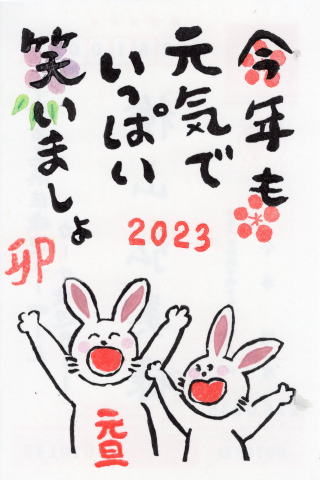 今年も
元気で
いっぱい
笑いましょ
2023
卯
元旦